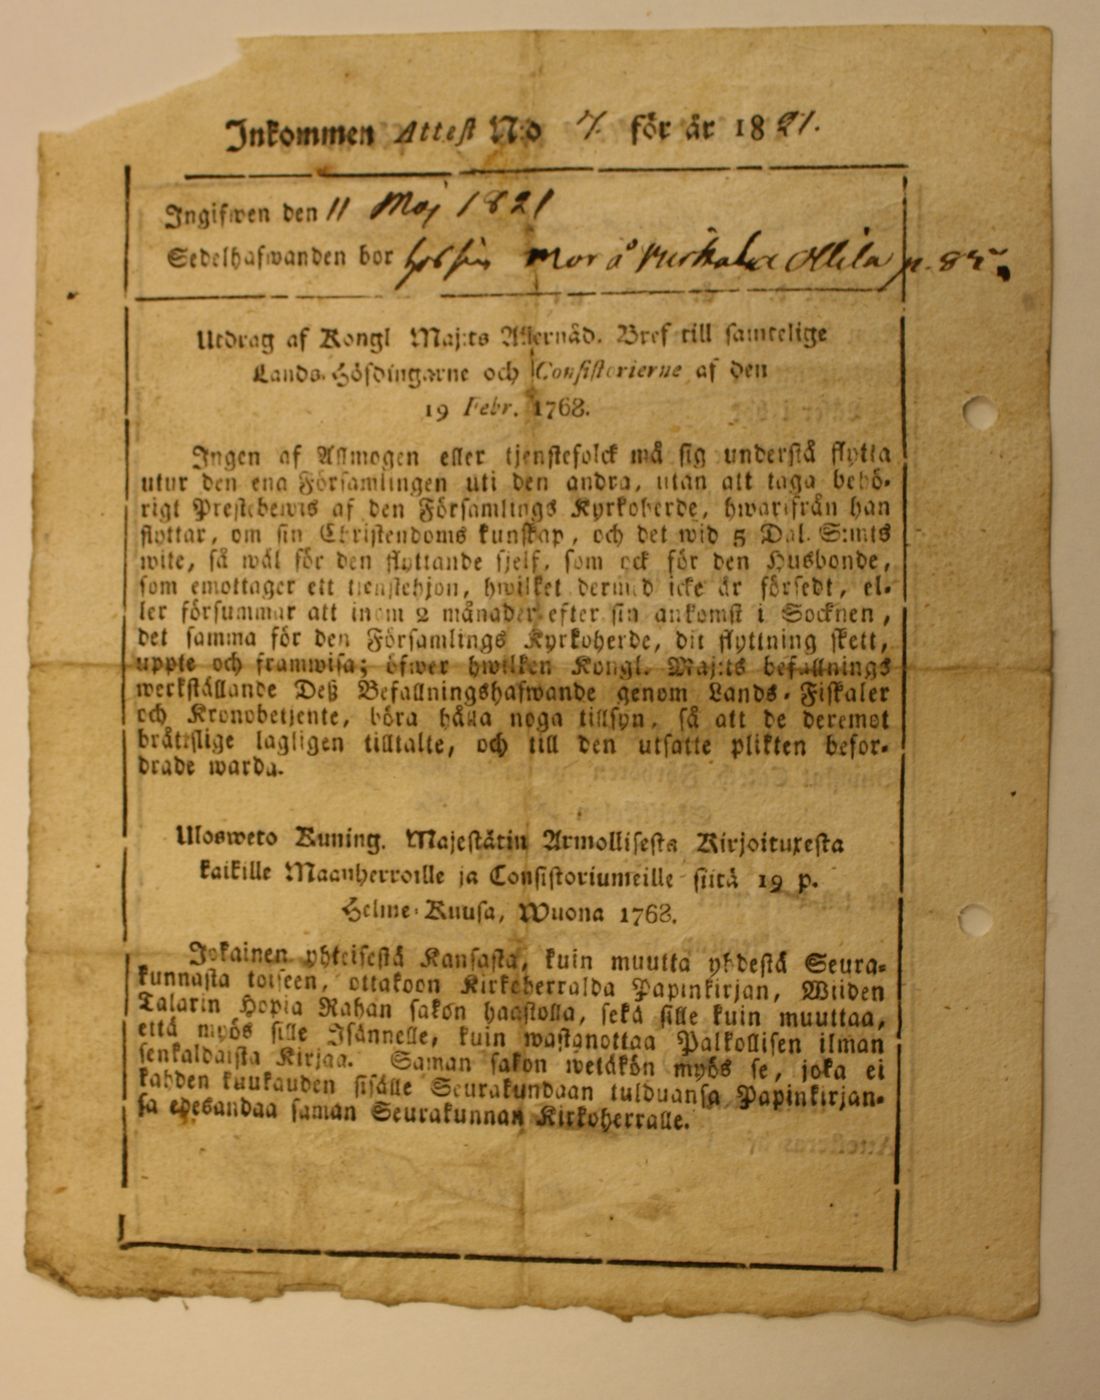 Inkommen Attest N:o 7. för år 1821.
Ingifwen den 11 Maj 1821
Sedelhafwanden bor hos sin Mor å Attila p. 85
Utdrag af Kongl Maj:ts Allernåd. Bref till samtelige
Lands-Höfdingarne och Consistorierne af den
19 Febr. 1763.
Ingen af Allmogen eller tjenstefolck må sig understå flytta
utur den ena Församlingen uti den andra, utan att taga behö-
rigt Prestebewis af den Församlings Kyrkoherde, hwarifrån han
flyttar, om sin Christendoms kunskap, och det wid 5 Dal. S:mts
wite, så wäl för den flyttande sjelf, som ock för den Husbonde,
som emottager ett tienstehjon, hwilket dermed icke är försedt, el-
ler försummar att inom 2 månader efter sin ankomst i Socknen,
det samma för den Församlings Kyrkoherde, dit flyttning skett,
uppte och framwisa; öfwer hwilken Kongl. Maj:ts befallnings
werkställande Deß Befallningshafwande genom Lands-Fiskaler
och Kronobetjente, böra hålla noga tillsyn, så att de deremot
bråttslige lagligen tilltalte, och till den utsatte plikten befor-
drade warda.
Ulosweto Kuning. Majestätin Armollisesta Kirjoituxesta
kaikille Maanherroille ja Consistoriumeille siitä 19 p.
Helme-Kuusa, Wuona 1763.
Jokainen yhteisestä Kansasta, kuin muutta yhdestä Seura-
kunnasta toiseen, ottakoon Kirkoherralda Papinkirjan, Wiiden
Talarin Hopia Rahan sakon haastolla, sekä sille kuin muuttaa,
että myös sille Isännelle, kuin wastanottaa Palkollisen ilman
senkaldaista Kirjaa. Saman sakon wetäkön myös se, joka ei
kahden kuukauden sisälle Seurakundaan tulduansa Papinkirjan-
sa edesandaa saman Seurakunnan Kirkoherralle.